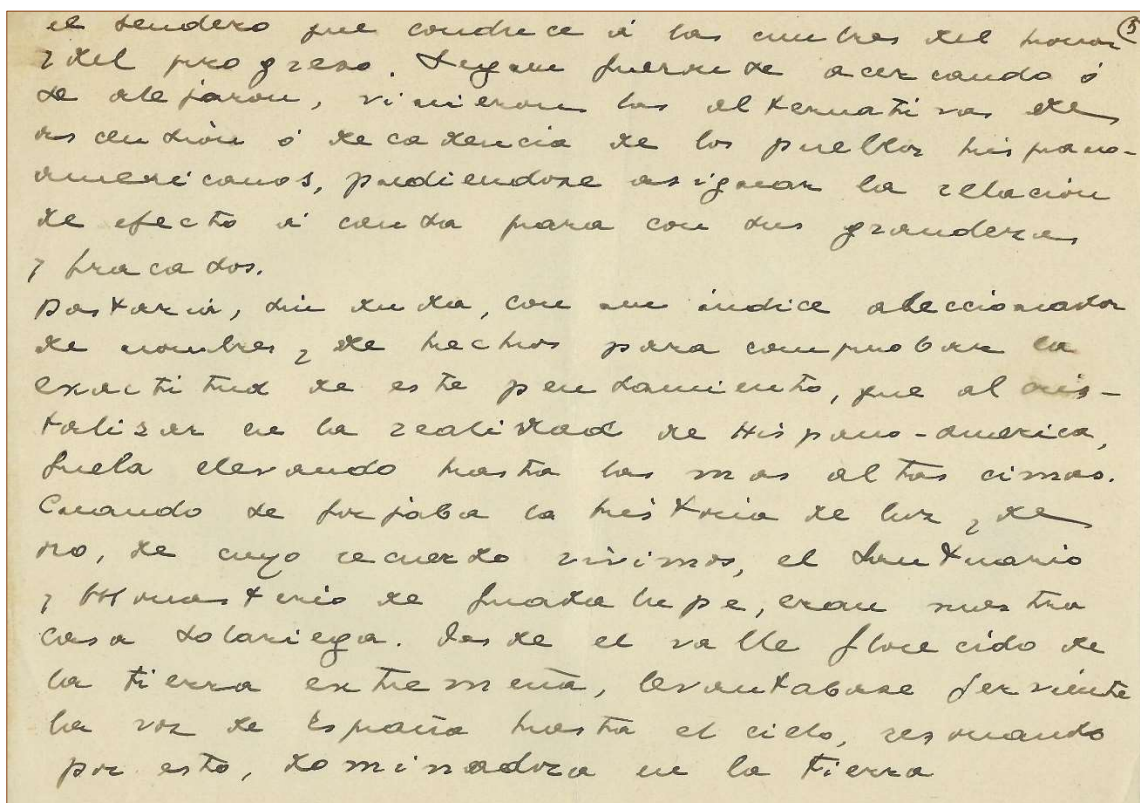 el sendero que conduce á las cumbres del honor (5)
y del progreso. Segun fueronse acercando ó
se alejaron, vinieron las alternativas de
ascensión ó decadencia de los pueblos hispano-
americanos, pudiendose asignar la relación
de efecto á causa para con sus grandezas
y fracasos.
Bastaria, sin duda, con un indice aleccionador
de nombres y de hechos para comprobar la
exactitud de este pensamiento, que al cris-
talizar en la realidad de Hispano-America,
fuela elevando hasta las mas altas cimas.
Cuando se forjaba la historia de luz y de
oro, de cuyo recuerdo vivimos, el Santuario
y Monasterio de Guadalupe, eran nuestra
casa solariega. Desde el valle florecido de
la tierra extremeña, levantabase ferviente
la voz de España hasta el cielo, resonando
por esto, dominadora en la tierra